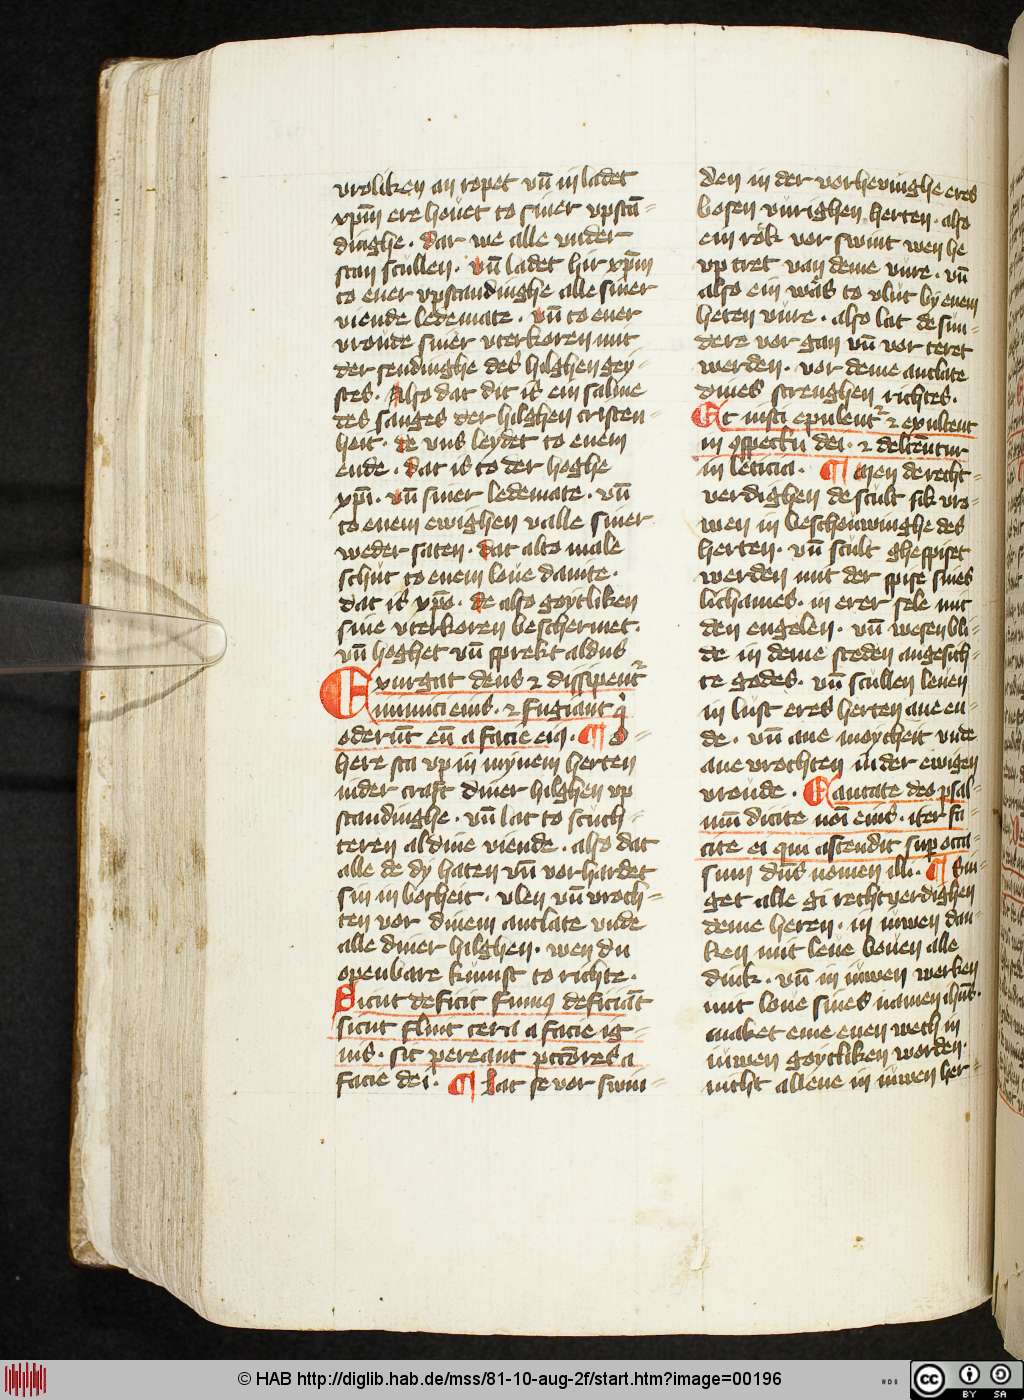 vroliken an ropet vn̄ in ladet
xp̄m ere houet to siner vpstā-
dinghe. Dar we alle vnder
stan scullen. vn̄ ladet hir xp̄m
to ener vpstandinghe alle siner
viende ledemate. vn̄ to ener
vronde siner vterkoren mit
der sendinghe des hilghen gey-
stes. Also dat dit is ein salme
des sanges der hilghen cristen-
heit. de vns leydet to enem
ende. dat is to der hoghe
xp̄i. vn̄ siner ledemate. vn̄
to enem ewighen valle siner
weder saten. dat alto male
schut to enem loue dauite.
dat is xp̄o. de also goytliken
sine vterkoren beschermet.
vn̄ hoghet vn̄ sprekt aldus
Exurgat deus ⁊ dissipent᷑
inimici eius. ⁊ fugiant q̄
oderūt eū a facie eiꝰ. ¶ O
here sta vp in mynem herten
in der craft diner hilghen vp
standinghe. vn̄ lat to scuch-
teren al dine viende. also dat
alle de dy haten vn̄ vorhardet
sin in bosheit. vlen vn̄ vroch-
ten vor dinem antlate vnde
alle diner hilghen. wen du
openbare kumst to richte.
Sicut deficit fumꝰ deficiāt
sicut fluit cera a facie ig-
nis. sic pereant pctōres a
facie dei. ¶ Lat se vor swin-
den in der vorheuinghe eres
bosen vurighen herten. also
ein rok vor swint wen he
vp tret van deme vure. vn̄
also ein was to vlut by enem
heten vure. also lat de sun-
dere vor gan vn̄ vor teret
werden. vor deme antlate
dines strenghen richtes.
Et iusti epulent᷑ ⁊ exultent
in ꝯspectu dei. ⁊ delectēntur
in leticia. ¶ Men de recht-
verdighen de scult sik vro-
wen in beschouwinghe des
herten. vn̄ scult ghespiset
werden mit der spise sines
lichames. in erer sele mit
den engelen. vn̄ wesen bli-
de in deme steden angesich-
te godes. vn̄ scullen leuen
in lust eres herten ane en-
de. vn̄ ane moycheit vnde
ane vrochten in der ewigen
vroude. Cantate deo psal-
mū dicite noī eius. iter fa-
cite ei qui ascendit sup occa-
sum dn̄s nomen illi. ¶ Sin-
get alle gi rechtuerdighen
deme heren. in iuwen dan-
ken mit leue bouen alle
dink. vn̄ in iuwen werken
mit loue sines namen
maket eme enen wech in
iuwen goytliken worden.
nicht allene in iuwen her-
© HAB http://diglib.hab.de/mss/81-10-aug-2f/start.htm?image=00196
HAB
cc BY SA